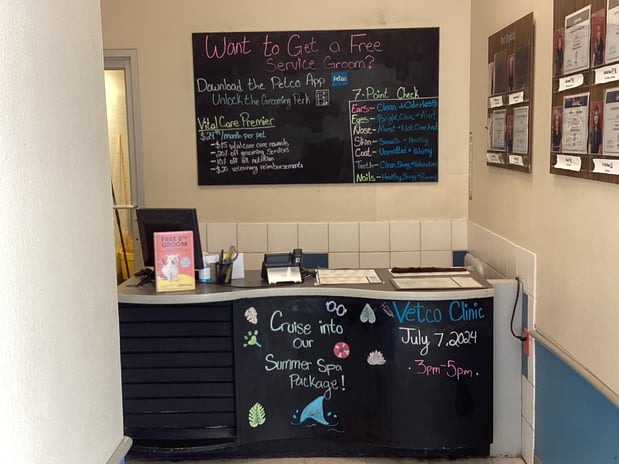 Want to Get a Free
Service Groom?
Download the Petco App
petco
Unlock the Grooming Perk
Vital Care Premier
/month per pet
-$15 vital care care rewards
-20% off grooming services
-10% off all nutrition
-$20 veterinary reimbursements
7-Point Check
Ears- Clean + Odorless
Eyes- Bright, Clear, + Alert
Nose- Moist + Not Cracked
Skin- Smooth + Healthy
Coat- Unmatted + Shiny
Teeth- Clean, Shiny +
Nails- Healthy, Shiny +
FREE 8TH
GROOM
Cruise into
our
Summer Spa
Package!
Vetco Clinic
July 7, 2024
3pm-5pm.